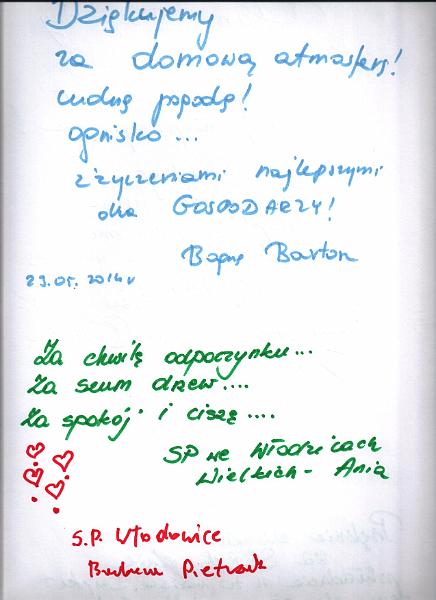 Dziękujemy
za domową atmosferę!
cudną pogodę!
ognisko...
z życzeniami najlepszymi
dla GOSPODARZY!
Barton
29.05.2014 r
Za chwilę odpoczynku...
Za szum drzew....
Za spokój i ciszę....
SP we Włodzicach
Wielkich - Ania
S.P. Włodowice
Pietrzak